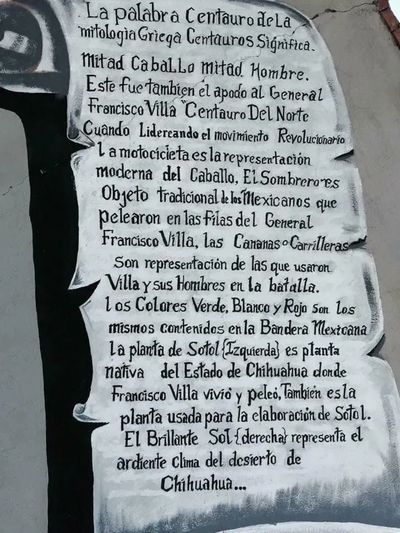 La palabra Centauro de La
mitologia Griega Centauros Significa.
Mitad Caballo Mitad Hombre.
Este fue tambien el apodo al General
Francisco Villa "Centauro Del Norte
Cuando Lidercando el movimiento Revolucionario
La motocicleta es la representación
moderna del Caballo, El Sombrero es
Objeto tradicional de los Mexicanos que
pelearon en las filas del General
Francisco Villa, las Cananas o Carrilleras
Son representación de las que usaron
Villa y sus Hombres en la batalla.
Los Colores Verde, Blanco y Rojo son los
mismos contenidos en la Bandera Mexicana
La planta de Sotol {Izquierda} es planta
nativa del Estado de Chihuahua donde
Francisco Villa vivió y peleó, También es la
planta usada para la elaboración de Sotol.
El Brillante Sol {derecha} representa el
ardiente clima del desierto de
Chihuahua...